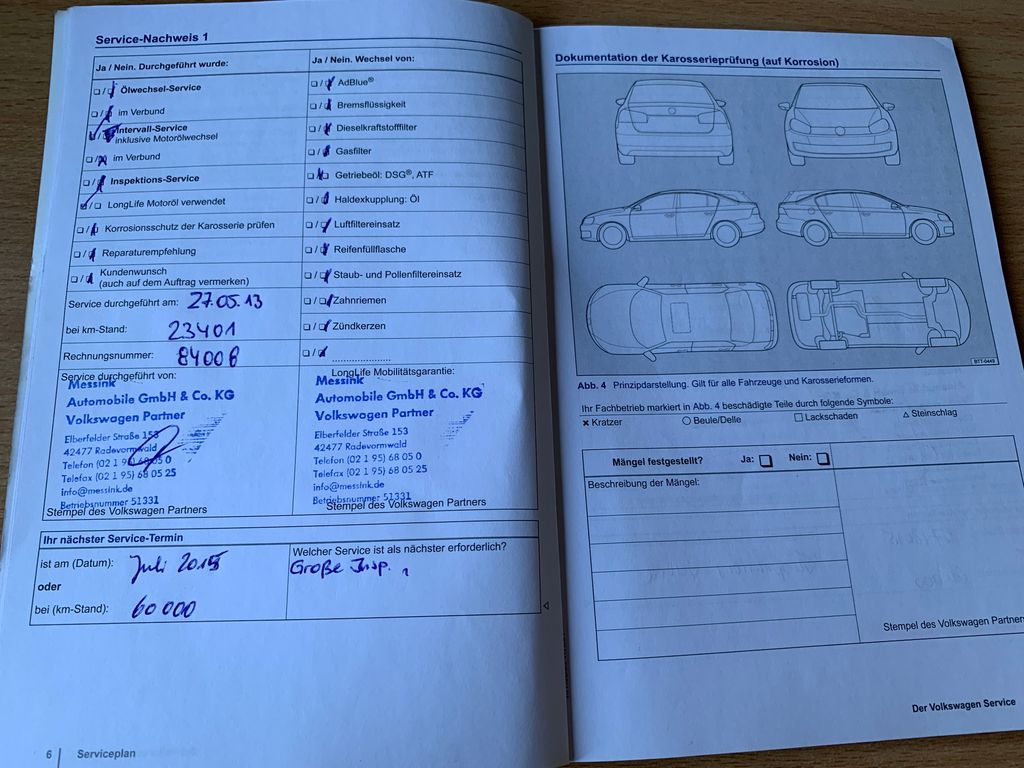 Service-Nachweis 1
Ja / Nein. Durchgeführt wurde:
Ölwechsel-Service
im Verbund
Intervall-Service
inklusive Motorölwechsel
im Verbund
Inspektions-Service
LongLife Motoröl verwendet
Korrosionsschutz der Karosserie prüfen
Reparaturempfehlung
Kundenwunsch
(auch auf dem Auftrag vermerken)
Service durchgeführt am: 27.05.13
bei km-Stand: 23401
Rechnungsnummer: 84006
Ja / Nein. Wechsel von:
AdBlue®
Bremsflüssigkeit
Dieselkraftstofffilter
Gasfilter
Getriebeöl: DSG®, ATF
Haldexkupplung: Öl
Luftfiltereinsatz
Reifenfüllflasche
Staub- und Pollenfiltereinsatz
Zahnriemen
Zündkerzen
Service durchgeführt von:
Messink
Automobile GmbH & Co. KG
Volkswagen Partner
Elberfelder Straße 153
42477 Radevormwald
Telefon (02 1 95) 68 05 0
Telefax (02 1 95) 68 05 25
info@messink.de
Betriebsnummer 51331
Stempel des Volkswagen Partners
LongLife Mobilitätsgarantie:
Messink
Automobile GmbH & Co. KG
Volkswagen Partner
Elberfelder Straße 153
42477 Radevormwald
Telefon (02 1 95) 68 05 0
Telefax (02 1 95) 68 05 25
info@messink.de
Betriebsnummer 51331
Stempel des Volkswagen Partners
Ihr nächster Service-Termin
ist am (Datum): Juli 2015
oder
bei (km-Stand): 60 000
Welcher Service ist als nächster erforderlich?
Große Insp.
6 Serviceplan
Dokumentation der Karosserieprüfung (auf Korrosion)
BTT-0449
Abb. 4 Prinzipdarstellung. Gilt für alle Fahrzeuge und Karosserieformen.
Ihr Fachbetrieb markiert in Abb. 4 beschädigte Teile durch folgende Symbole:
Kratzer Beule/Delle Lackschaden Steinschlag
Mängel festgestellt? Ja: Nein:
Beschreibung der Mängel:
Stempel des Volkswagen Partners
Der Volkswagen Service